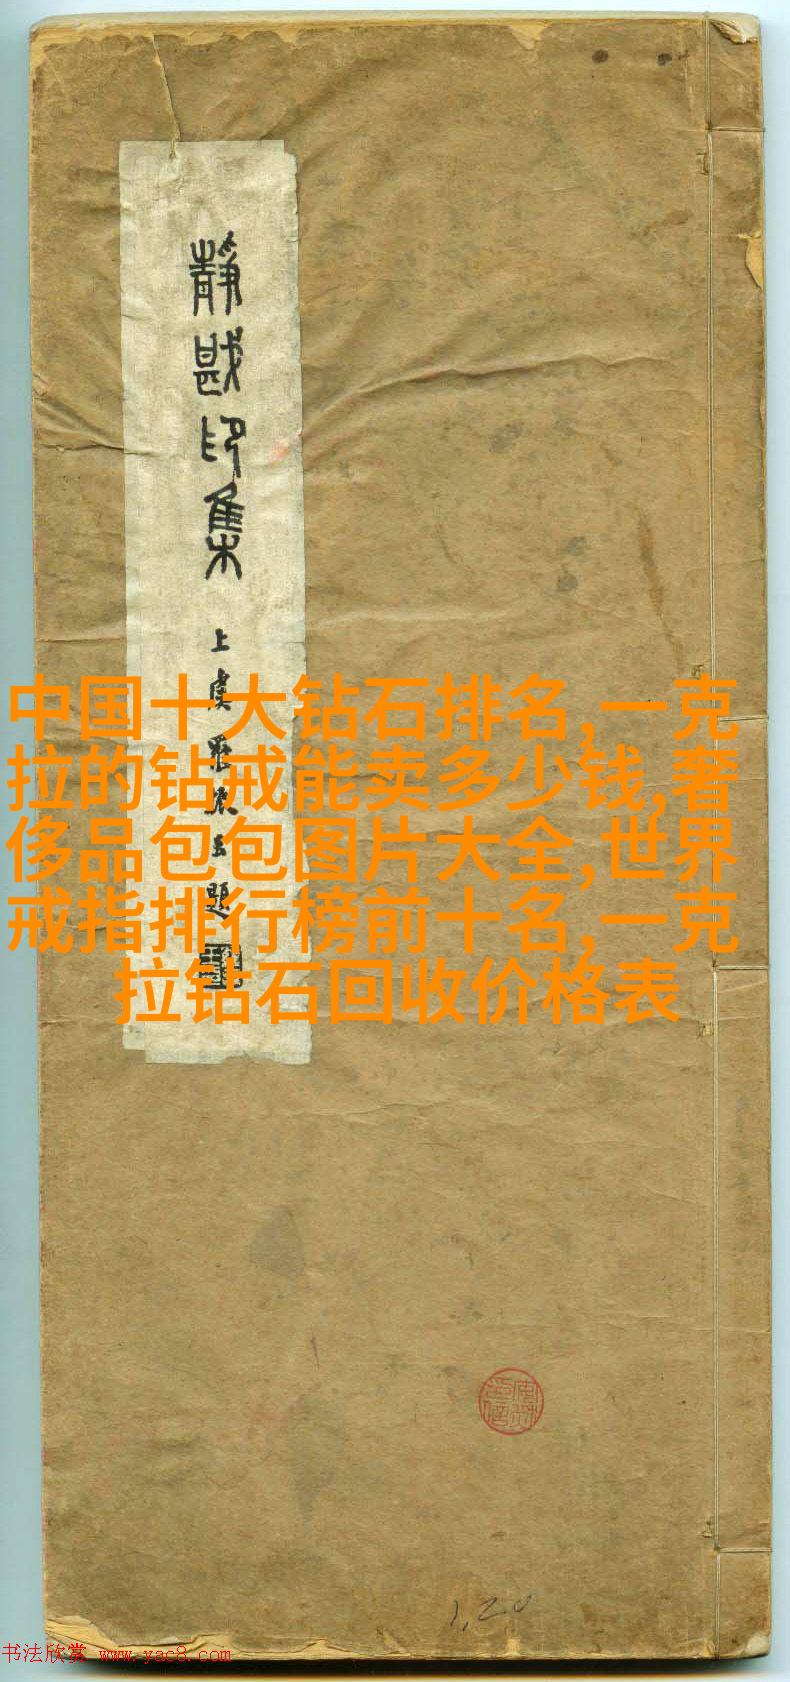 靜戡印集
上虞羅振玉題
中国十大钻石排名,一克
拉的钻戒能卖多少钱,奢
侈品包包图片大全,世界
戒指排行榜前十名,一克
拉钻石回收价格表
1,20
书法欣赏 www.yac8.com